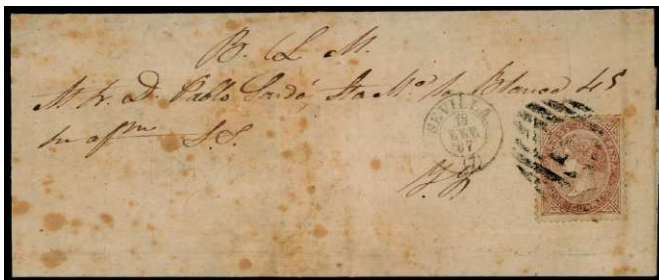 B. L. M.
Al Sr. D. Pablo Sardó, Sta. Mª la Blanca 45
su afmo S.S.
SEVILLA
ENE
67
(7)